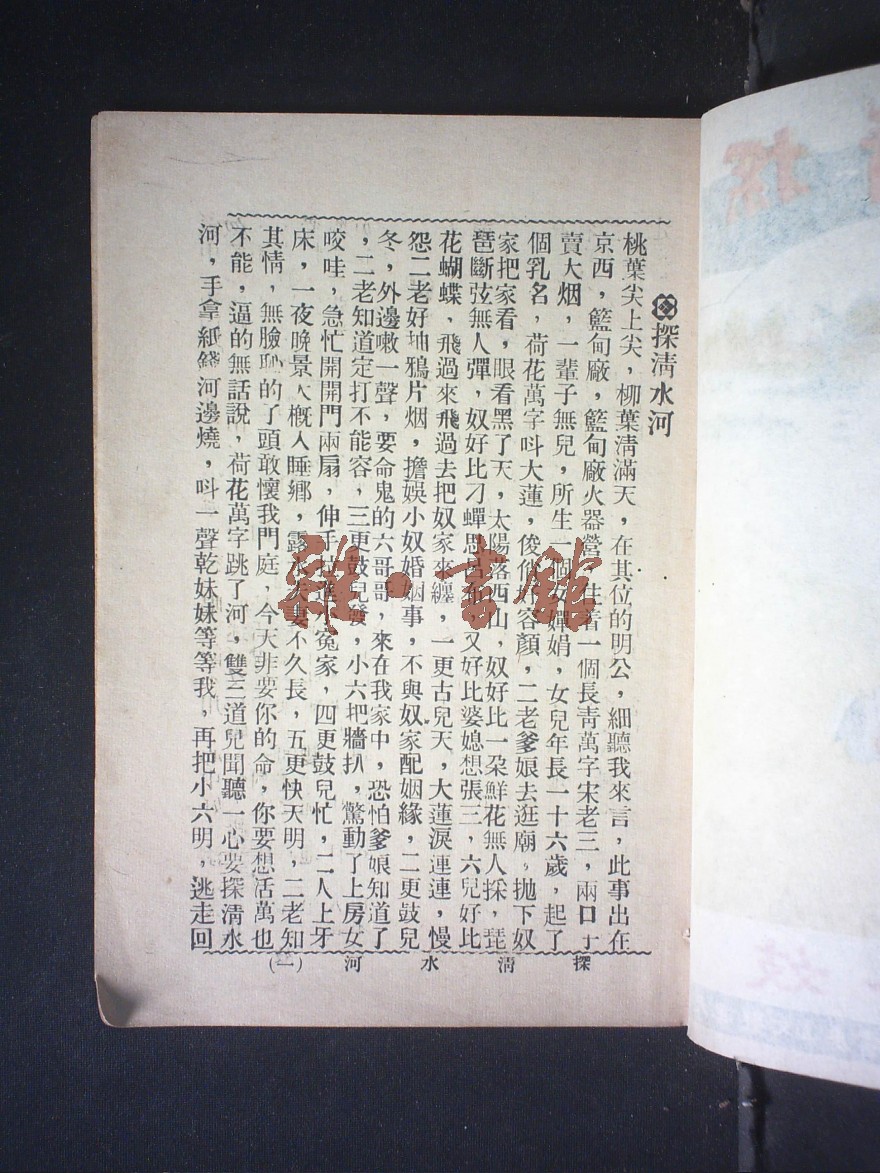 探淸水河
桃葉尖上尖，柳葉淸滿天，在其位的明公，細聽我來言，此事出在
京西，籃甸廠，籃甸廠火器營，住着一個長靑萬字宋老三，兩口子
賣大烟，一輩子無兒，所生一個女嬋娟，女兒年長一十六歲，起了
個乳名，荷花萬字呌大蓮，俊俏容顏，二老爹娘去逛廟，抛下奴
家把家看，眼看黑了天，太陽落西山，奴好比一朶鮮花無人採，琵
琶斷弦無人彈，奴好比刁蟬思呂布，又好比婆媳想張三，六兒好比
花蝴蝶，飛過來飛過去把奴家來纏，一更古兒天，大蓮淚連連，慢
怨二老好抽鴉片烟，擔娛小奴婚姻事，不與奴家配姻緣，二更鼓兒
冬，外邊嗽一聲，要命鬼的六哥哥，來在我家中，恐怕爹娘知道了
，二老知道定打不能容，三更鼓兒發，小六把牆扒，驚動了上房女
咬哇，急忙開開門兩扇，伸手拉進小寃家，四更鼓兒忙，二人上牙
床，一夜晚景大槪人睡鄕，露水夫妻不久長，五更快天明，二老知
其情，無臉恥的了頭敢懷我門庭，今天非要你的命，你要想活萬也
不能，逼的無話說，荷花萬字跳了河，雙三道兒聞聽一心要探淸水
河，手拿紙錢河邊燒，呌一聲乾妹妹等等我，再把小六明，逃走回
探淸水河 (一)
雜·書館